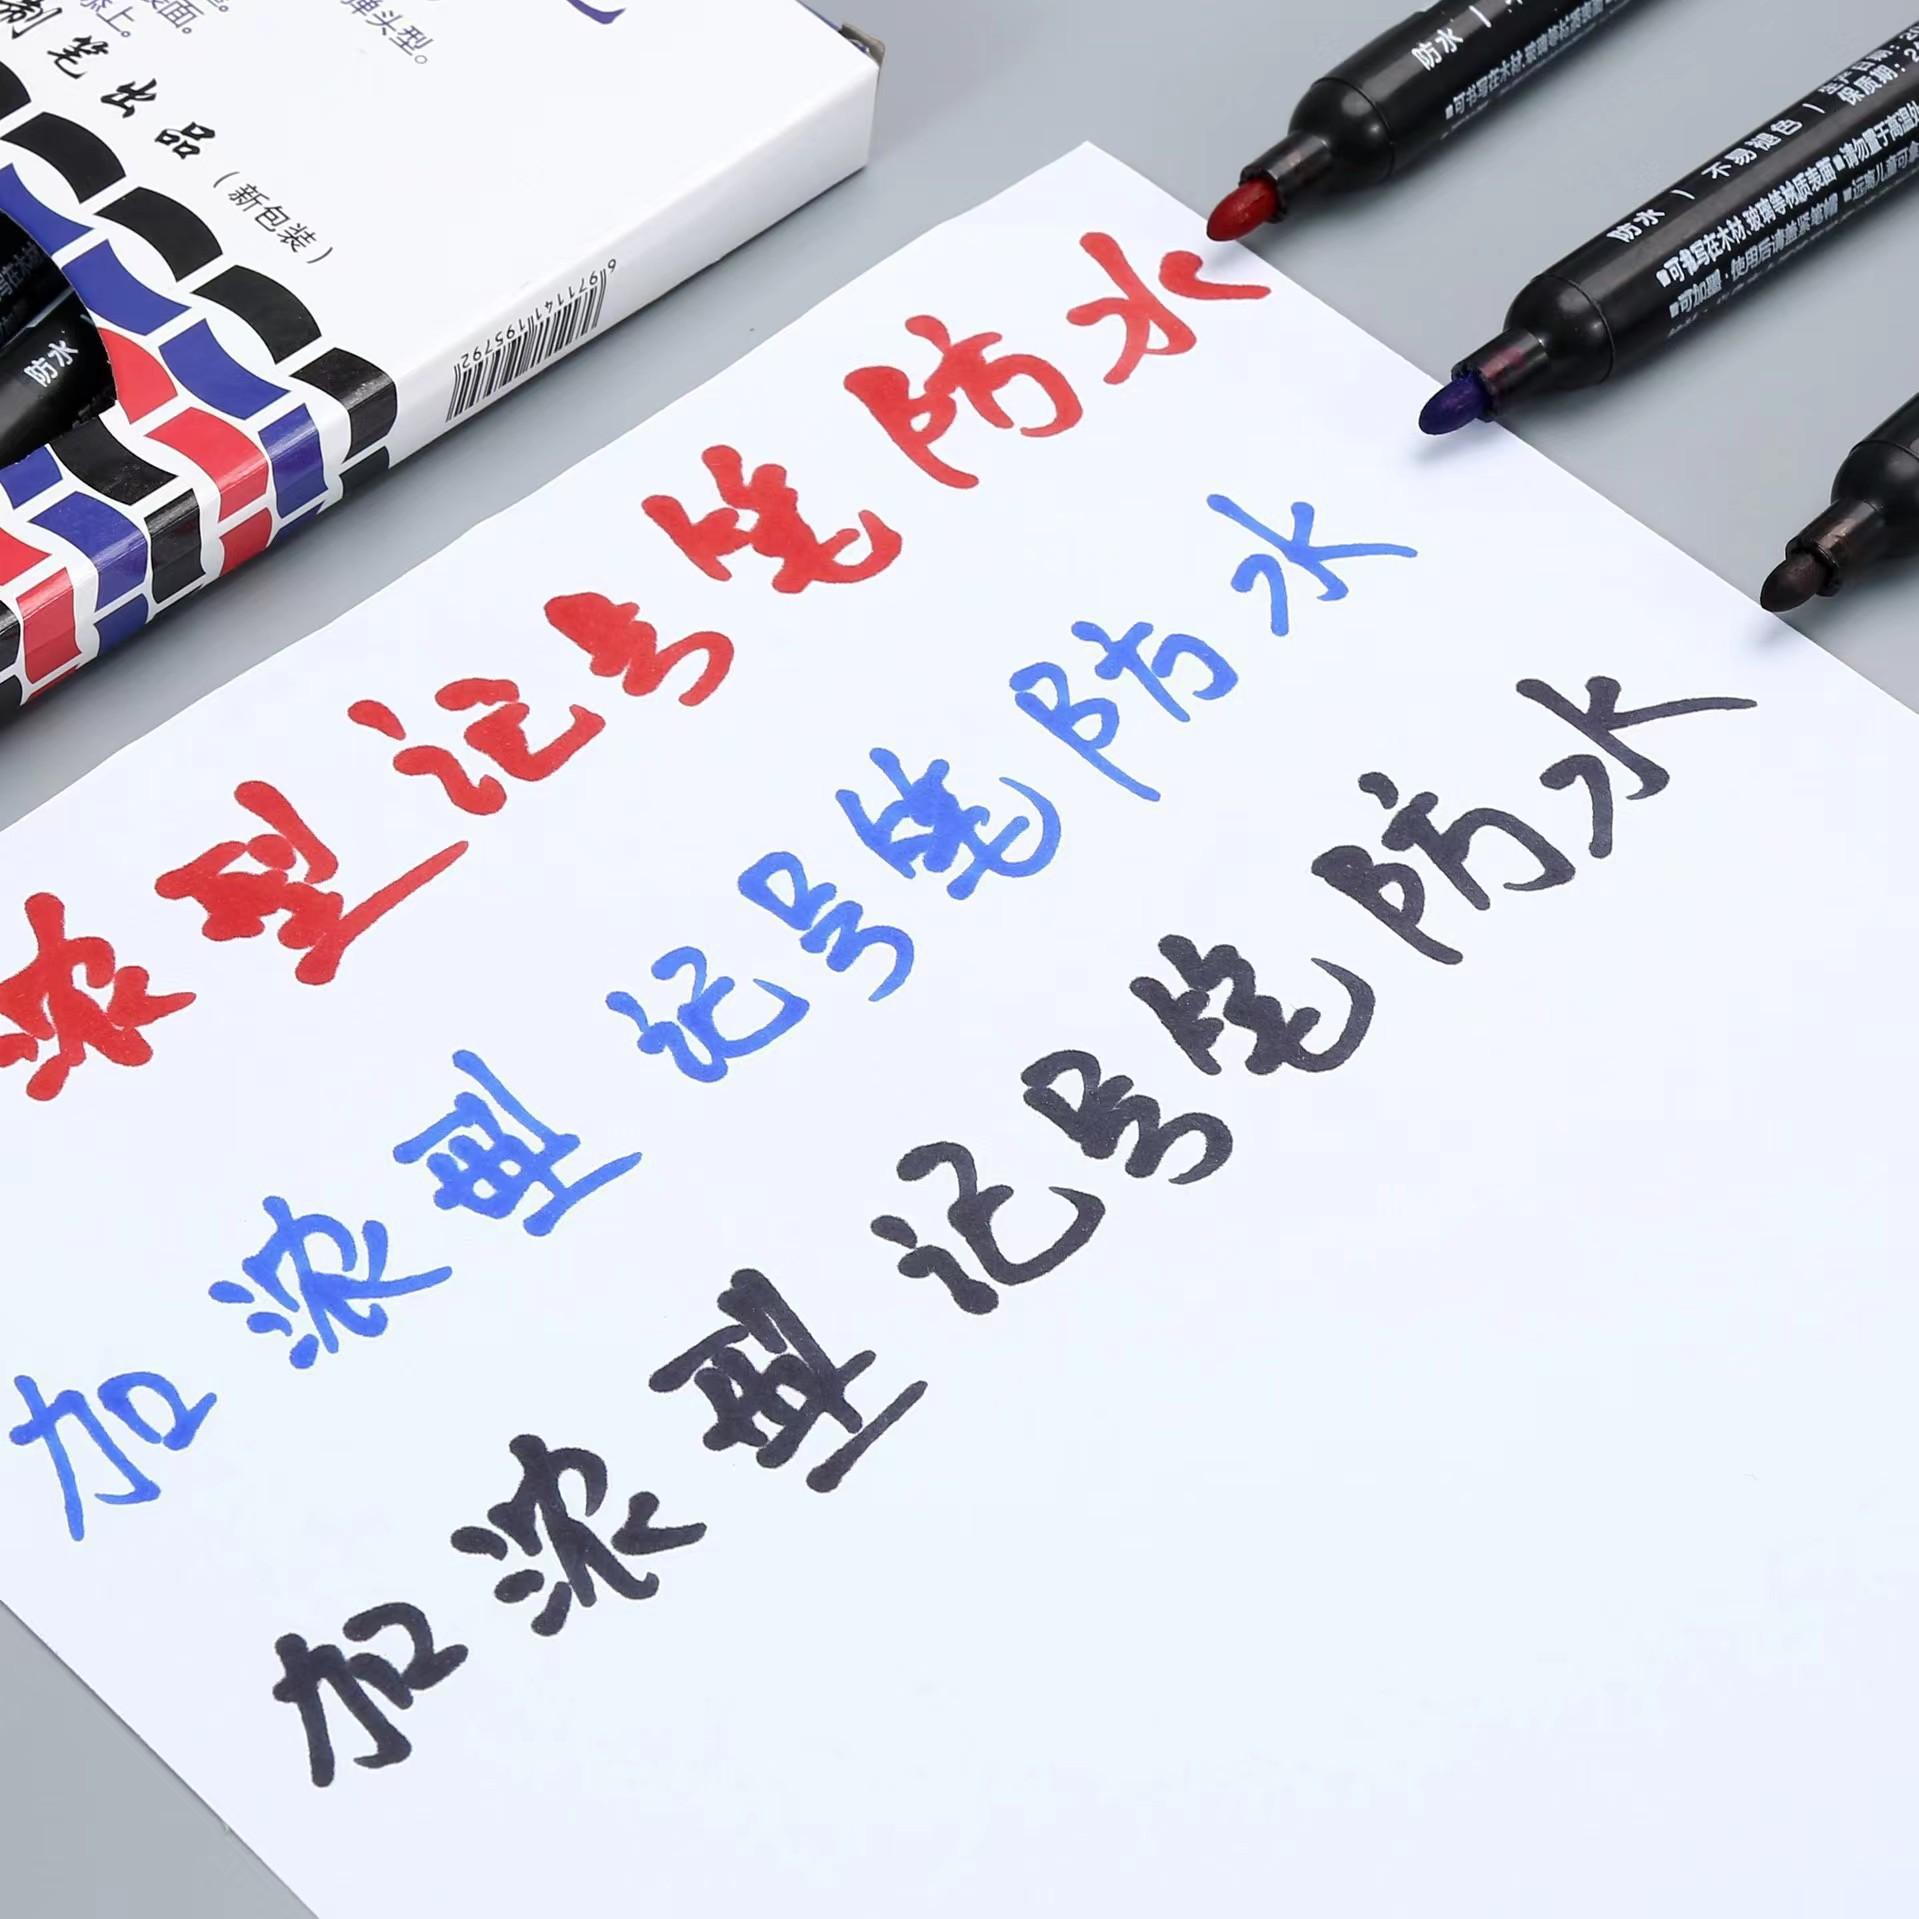 弹头型。
制笔出品(新包装)
6971141195792
防水
浓型记号笔防水
加浓型记号笔防水
加浓型记号笔防水
防水 |
防水 | 不易褪色 |
保质期:
■可书写在木材、玻璃等材质表面■请勿置于高温处
■可加墨·使用后请盖紧笔帽